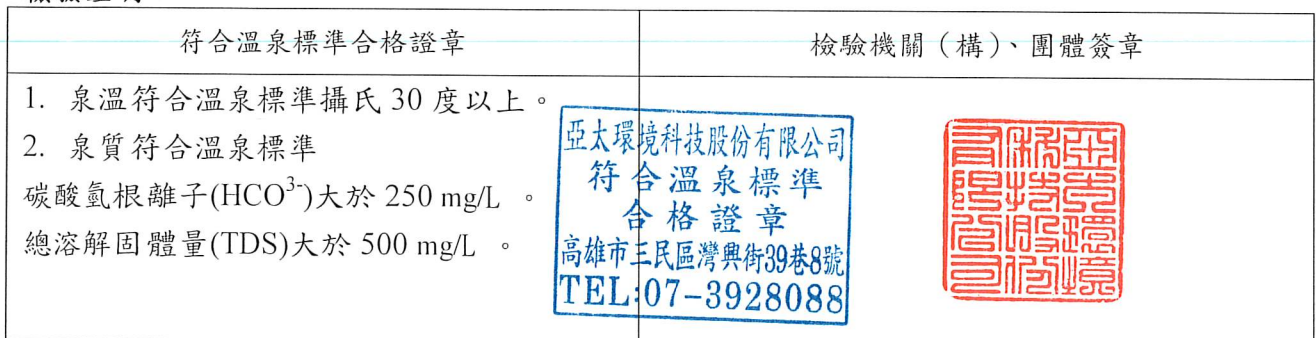 符合溫泉標準合格證章
檢驗機關（構）、團體簽章
1. 泉溫符合溫泉標準攝氏 30 度以上。
2. 泉質符合溫泉標準
碳酸氫根離子(HCO³⁻)大於 250 mg/L 。
總溶解固體量(TDS)大於 500 mg/L 。
亞太環境科技股份有限公司
符合溫泉標準
合格證章
高雄市三民區灣興街39巷8號
TEL:07-3928088
亞太環境
科技股份
有限公司